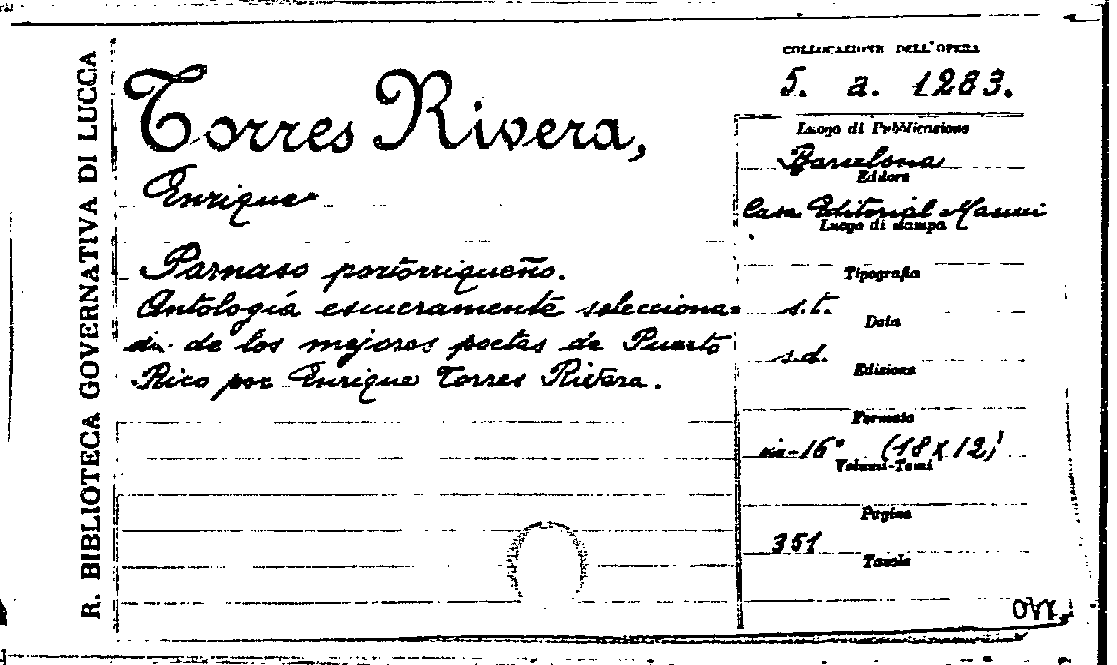 R. BIBLIOTECA GOVERNATIVA DI LUCCA
COLLOCAZIONE DELL'OPERA
5. a. 1283.
Torres Rivera,
Enrique
Parnaso portorriqueño.
Antología esmeramente selecciona-
da de los mejores poetas de Puerto
Rico por Enrique Torres Rivera.
Luogo di Pubblicazione
Barcelona
Editore
Casa Editorial Maucci
Luogo di stampa
Tipografia
s.t.
Data
s.d.
Edizione
Formato
in-16° (18x12)
Volumi-Tomi
Pagine
351
Tavole